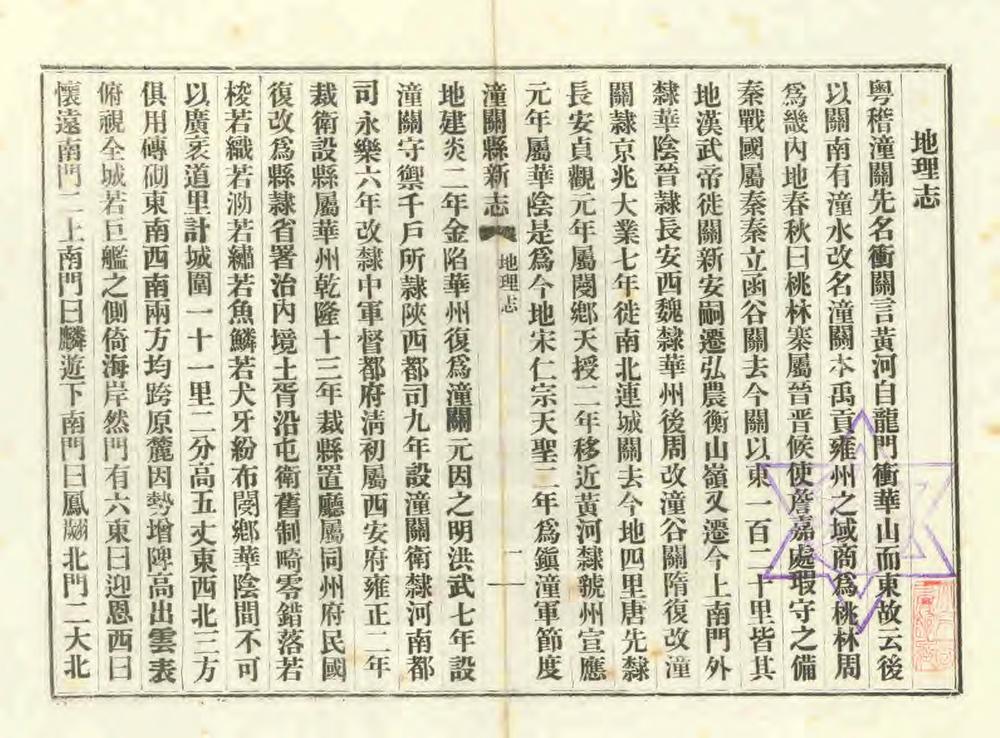 地理志
粵稽潼關先名衝關言黃河自龍門衝華山而東故云後
以關南有潼水改名潼關本禹貢雍州之域商爲桃林周
爲畿內地春秋曰桃林寨屬晉晉候使詹嘉處瑕守之備
秦戰國屬秦秦立函谷關去今關以東一百二十里皆其
地漢武帝徙關新安嗣遷弘農衡山嶺又遷今上南門外
隸華陰晉隸長安西魏隸華州後周改潼谷關隋復改潼
關隸京兆大業七年徙南北連城關去今地四里唐先隸
長安貞觀元年屬閿鄉天授二年移近黃河隸虢州宣應
元年屬華陰是爲今地宋仁宗天聖二年爲鎭潼軍節度
潼關縣新志 地理志 一
地建炎二年金陷華州復爲潼關元因之明洪武七年設
潼關守禦千戶所隸陝西都司九年設潼關衛隸河南都
司永樂六年改隸中軍督都府淸初屬西安府雍正二年
裁衛設縣屬華州乾隆十三年裁縣置廳屬同州府民國
復改爲縣隸省署治內境土胥沿屯衛舊制畸零錯落若
梭若織若泐若繡若魚鱗若犬牙紛布閿鄉華陰間不可
以廣袤道里計城圍一十一里二分高五丈東西北三方
俱用磚砌東南西南兩方均跨原麓因勢增陴高出雲表
俯視全城若巨艦之側倚海岸然門有六東曰迎恩西曰
懷遠南門二上南門曰麟遊下南門曰鳳翽北門二大北